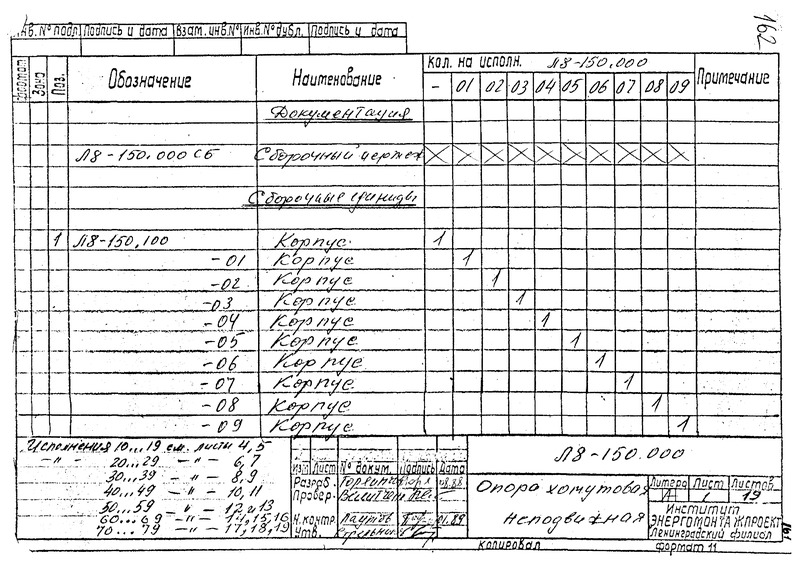 162
Инв.№ подл. Подпись и дата Взам. инв.№ Инв.№ дубл. Подпись и дата
Формат Зона Поз. Обозначение Наименование Кол. на исполн. Л8-150.000 Примечание
- 01 02 03 04 05 06 07 08 09
Документация
Л8-150.000 СБ Сборочный чертеж X X X X X X X X X X
Сборочные единицы
1 Л8-150.100 Корпус 1
-01 Корпус 1
-02 Корпус 1
-03 Корпус 1
-04 Корпус 1
-05 Корпус 1
-06 Корпус 1
-07 Корпус 1
-08 Корпус 1
-09 Корпус 1
Исполнения 10...19 см. листы 4,5
-"- 20...29 -"- 6,7
30...39 -"- 8,9
40...49 -"- 10,11
50...59 -"- 12 и 13
60...69 -"- 14,15,16
70...79 -"- 17,18,19
Изм Лист № докум. Подпись Дата
Разраб. 08.88
Провер.
Н.контр. 01.89
Утв.
Л8-150.000
Опора хомутовая
неподвижная
Литера Лист Листов
А 1 19
Институт
ЭНЕРГОМОНТАЖПРОЕКТ
Ленинградский филиал
Копировал Формат 11